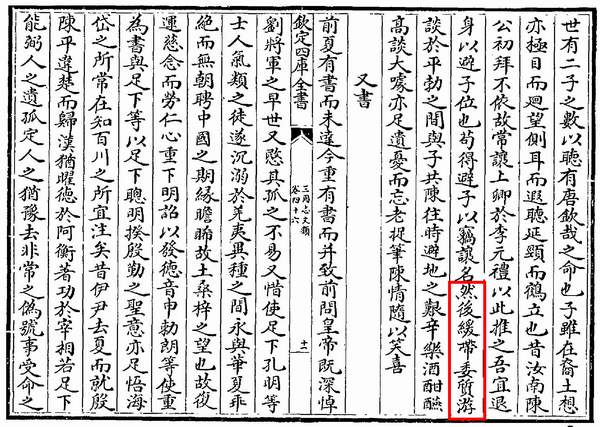 世有二子之數以聽有唐欽哉之命也子雖在裔土想
亦極目而廻望側耳而遐聽延頸而鶴立也昔汝南陳
公初拜不依故常讓上卿於李元禮以此推之吾宜退
身以避子位也苟得避子以竊讓名然後緩帶委質游
談於平勃之間與子共陳往時避地之艱辛樂酒酣讌
高談大噱亦足遺憂而忘老捉筆陳情隨以笑喜
又書
前夏有書而未達今重有書而并致前問皇帝既深悼
欽定四庫全書
三國志文類
卷四十六
十一
劉將軍之早世又愍其孤之不易又惜使足下孔明等
士人氣類之徒遂沉溺於羌夷異種之間永與華夏乖
絶而無朝聘中國之期緣瞻睎故土桑梓之望也故復
運慈念而勞仁心重下明詔以發德音申勑朗等使重
為書與足下等以足下聰明揆殷勤之聖意亦足悟海
岱之所常在知百川之所宜注矣昔伊尹去夏而就殷
陳平違楚而歸漢猶曜德於阿衡著功於宰相若足下
能弼人之遺孤定人之猶豫去非常之偽號事受命之